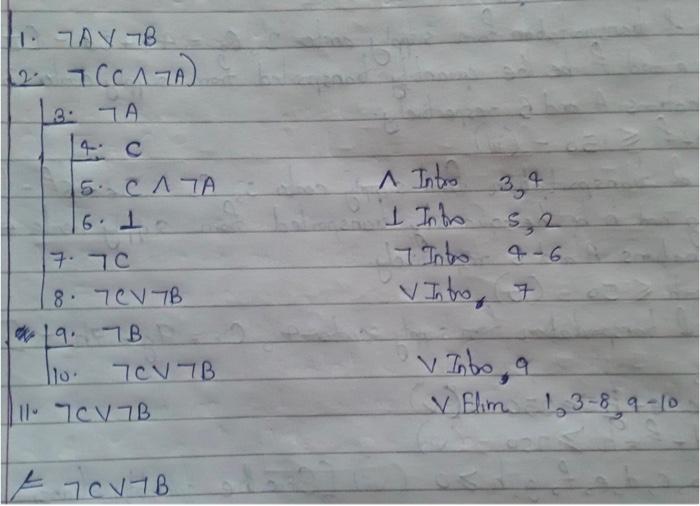 1. ¬A∨¬B
2. ¬(C∧¬A)
3. ¬A
4. C
5. C∧¬A ∧ Intro 3,4
6. ⊥ ⊥ Intro 5,2
7. ¬C ¬ Intro 4-6
8. ¬C∨¬B ∨ Intro, 7
9. ¬B
10. ¬C∨¬B ∨ Intro, 9
11. ¬C∨¬B ∨ Elim 1,3-8,9-10
¬C∨¬B